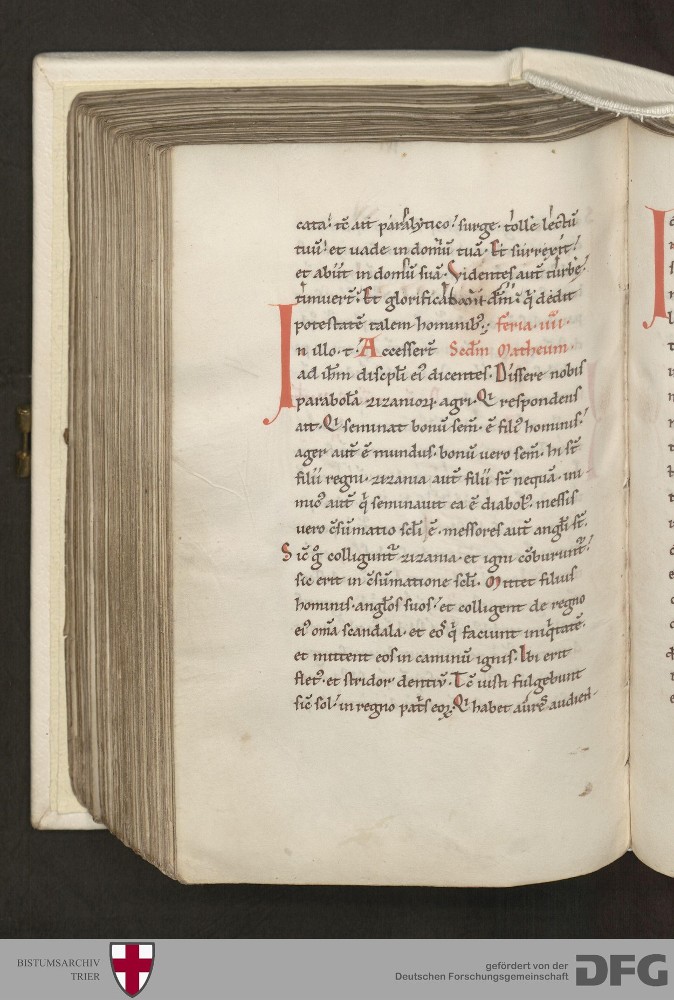 cata. tc̄ ait paralytico. surge. tolle lectū
tuū. et uade in domū tuā. Et surrexit.
et abiit in domū suā. Videntes aut̄ turbe.
timuert̄. Et glorificabant dn̄m. q̄ dedit
potestatē talem hominib;. feria. iiii.
In illo. t. Accessert̄ Scdm Matheum.
ad ihm discipl̄i ei᷒ dicentes. Dissere nobis
parabolā zizanioꝝ agri. Qi respondens
ait. Qi seminat bonū sem̄. ē fili᷒ hominis.
ager aut̄ ē mundus. bonū uero sem̄. hi st̄
filii regni. zizania aut̄ filii st̄ nequā. ini
mic᷒ aut̄ q̄ seminauit ea ē diabol᷒. messis
uero c̄sūmatio scl̄i ē. messores aut̄ angl̄i st̄.
Sic̄ g̊ colligunt᷑ zizania. et igni cōburunt᷑.
sic erit in c̄sūmatione scl̄i. Mittet filius
hominis. angl̄os suos. et colligent de regno
ei᷒ om̄a scandala. et eos q̄ faciunt iniq̄tatē.
et mittent eos in caminū ignis. Ibi erit
flet᷒. et stridor dentiū. Tc̄ iusti fulgebunt
sic̄ sol. in regno pat̄s eoꝝ. Qi habet aures audien
BISTUMSARCHIV
TRIER
gefördert von der
Deutschen Forschungsgemeinschaft
DFG